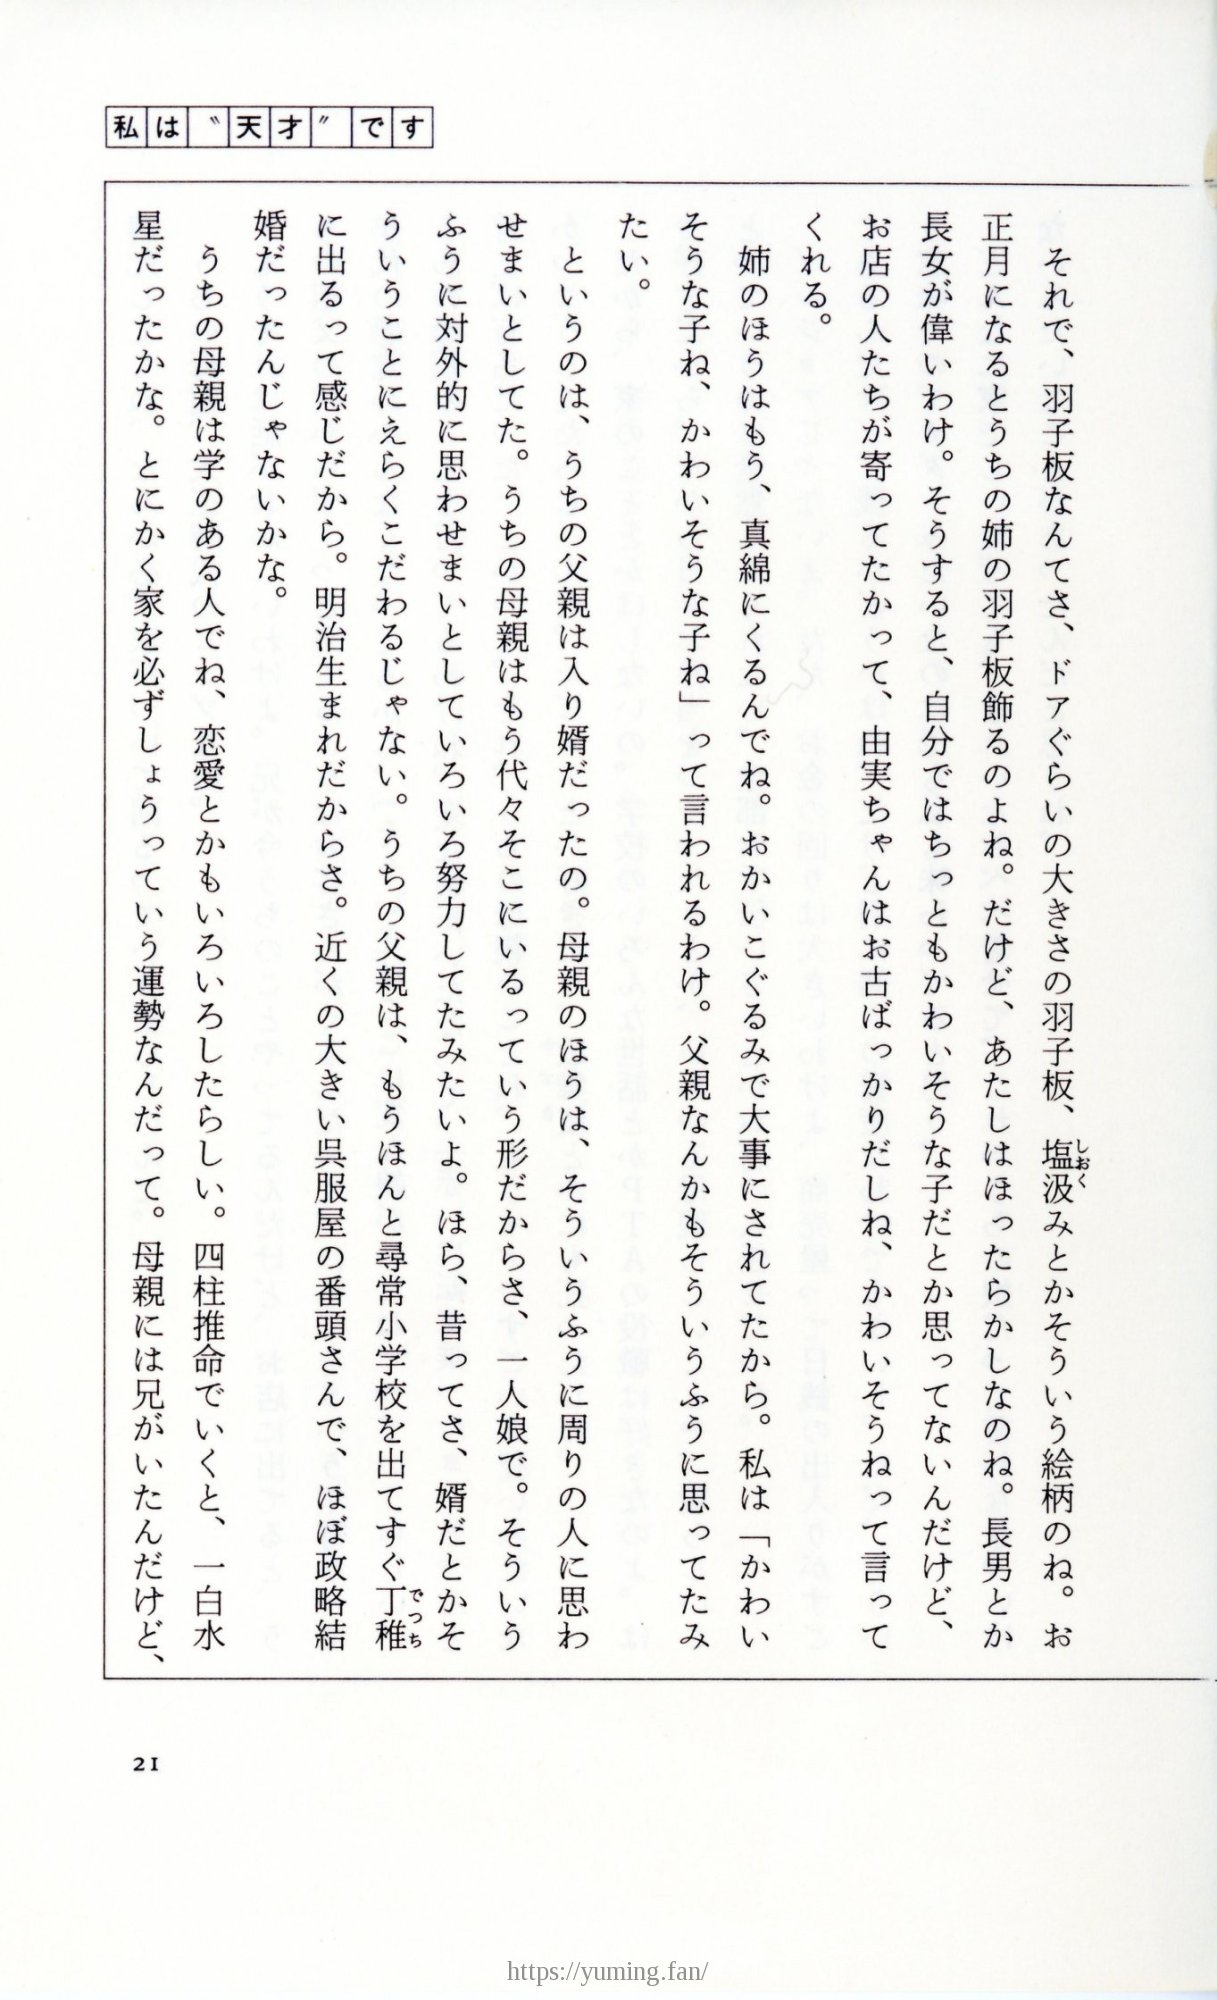 私は〝天才〟です
それで、羽子板なんてさ、ドアぐらいの大きさの羽子板、塩汲みとかそういう絵柄のね。お
しおく
正月になるとうちの姉の羽子板飾るのよね。だけど、あたしはほったらかしなのね。長男とか
長女が偉いわけ。そうすると、自分ではちっともかわいそうな子だとか思ってないんだけど、
お店の人たちが寄ってたかって、由実ちゃんはお古ばっかりだしね、かわいそうねって言って
くれる。
姉のほうはもう、真綿にくるんでね。おかいこぐるみで大事にされてたから。私は「かわい
そうな子ね、かわいそうな子ね」って言われるわけ。父親なんかもそういうふうに思ってたみ
たい。
というのは、うちの父親は入り婿だったの。母親のほうは、そういうふうに周りの人に思わ
せまいとしてた。うちの母親はもう代々そこにいるっていう形だからさ、一人娘で。そういう
ふうに対外的に思わせまいとしていろいろ努力してたみたいよ。ほら、昔ってさ、婿だとかそ
ういうことにえらくこだわるじゃない。うちの父親は、もうほんと尋常小学校を出てすぐ丁稚
でっち
に出るって感じだから。明治生まれだからさ。近くの大きい呉服屋の番頭さんで、ほぼ政略結
婚だったんじゃないかな。
うちの母親は学のある人でね、恋愛とかもいろいろしたらしい。四柱推命でいくと、一白水
星だったかな。とにかく家を必ずしょうっていう運勢なんだって。母親には兄がいたんだけど、
21
https://yuming.fan/